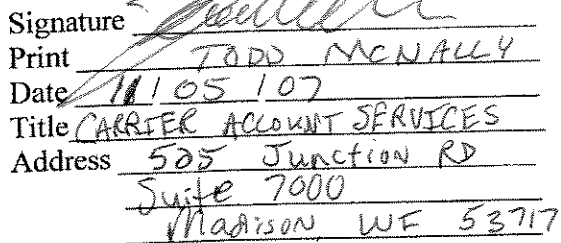 Signature
Print TODD MCNALLY
Date 11/05/07
Title CARRIER ACCOUNT SERVICES
Address 525 Junction RD
Suite 7000
Madison WI 53717